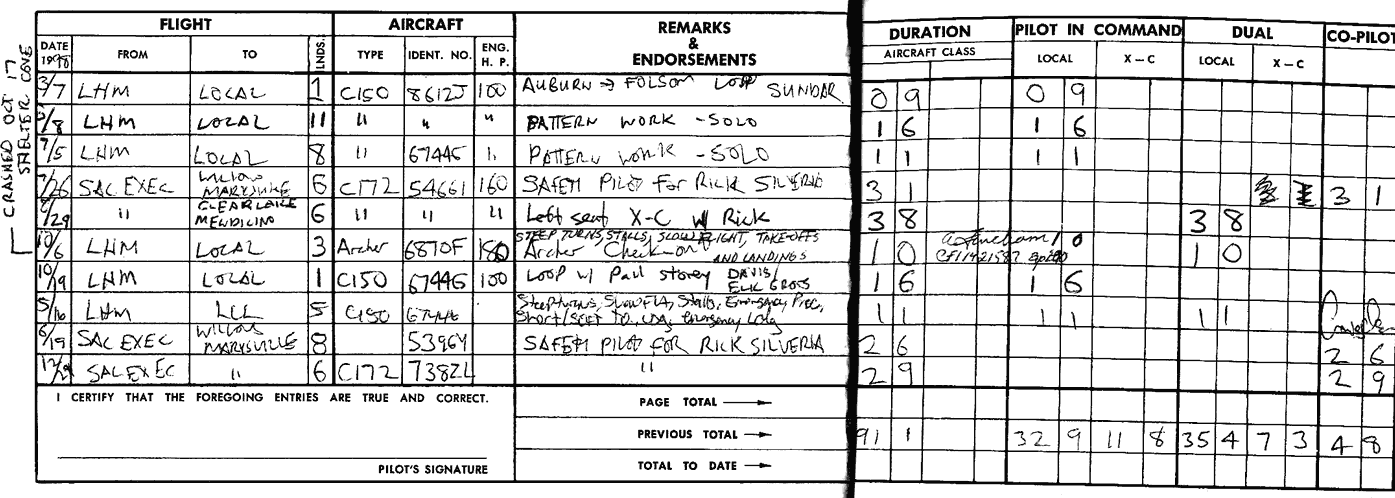 CRASHED OCT 17
SHELTER COVE
FLIGHT AIRCRAFT REMARKS & ENDORSEMENTS DURATION PILOT IN COMMAND DUAL CO-PILOT
DATE 19 FROM TO LNDS. TYPE IDENT. NO. ENG. H. P. AIRCRAFT CLASS LOCAL X–C LOCAL X–C
3/7 LHM LOCAL 1 C150 8612J 100 AUBURN → FOLSOM LOOP SUNDAR 0 9 0 9
/8 LHM LOCAL 11 " " " PATTERN WORK - SOLO 1 6 1 6
7/5 LHM LOCAL 8 " 6744G " PATTERN WORK - SOLO 1 1 1 1
7/26 SAC EXEC WILLOWS MARYSVILLE 6 C172 54661 160 SAFETY PILOT FOR RICK SILVERIA 3 1 3 1
/29 " CLEARLAKE MENDICINO 6 " " " Left seat X-C w/ Rick 3 8 3 8
10/6 LHM LOCAL 3 Archer 6870F 180 STEEP TURNS, STALLS, SLOW FLIGHT, TAKE-OFFS AND LANDINGS Archer Check-out 1 0 1 0 1 0
10/19 LHM LOCAL 1 C150 6744G 100 LOOP w/ Paul Storey DAVIS/ ELK GROVE 1 6 1 6
5/16 LHM LCL 5 C150 Steep turns, Slow Flt, Stalls, Emergency Proc, Short/SOFT TO, Emergency Ldg 1 1 1 1 1 1
6/19 SAC EXEC WILLOWS MARYSVILLE 8 5396Y SAFETY PILOT FOR RICK SILVERIA 2 6 2 6
12/29 SAC EXEC " 6 C172 7382L " 2 9 2 9
I CERTIFY THAT THE FOREGOING ENTRIES ARE TRUE AND CORRECT.
PAGE TOTAL →
PREVIOUS TOTAL → 91 1 32 9 11 8 35 4 7 3 4 8
PILOT'S SIGNATURE TOTAL TO DATE →